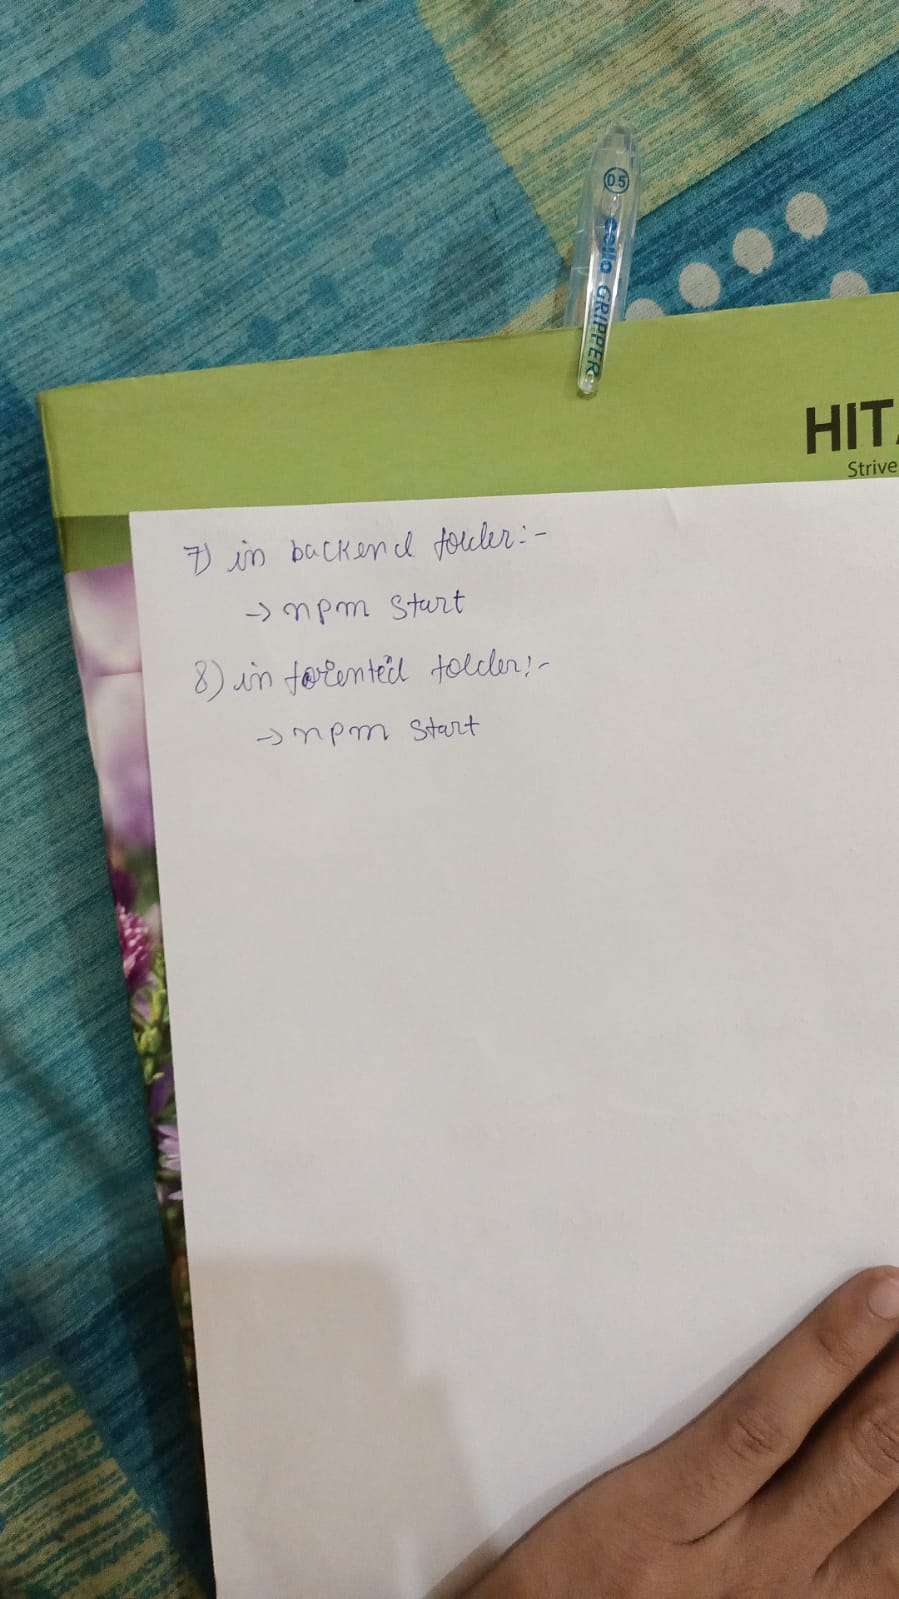 0.5
cello GRIPPER
HIT
Strive
7) in backend folder:-
→ npm start
8) in forented folder:-
→ npm start